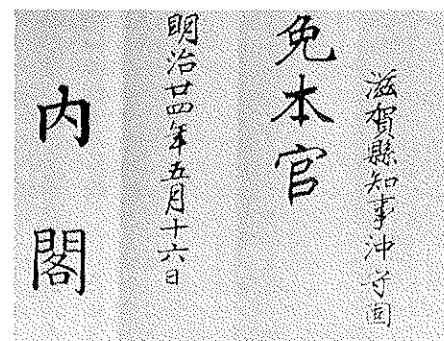 滋賀縣知事沖守固
免本官
明治廿四年五月十六日
内閣